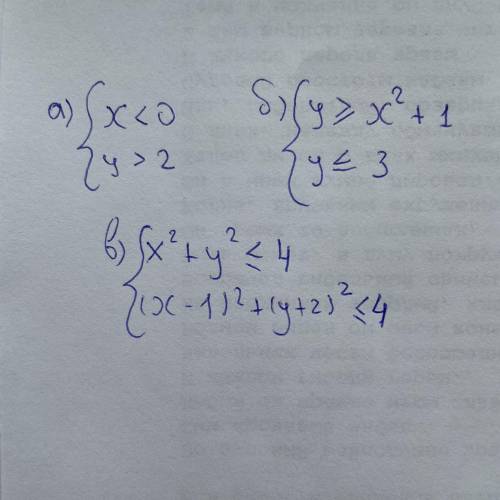 а) { x < 0
y > 2
б) { y ≥ x² + 1
y ≤ 3
в) { x² + y² ≤ 4
(x - 1)² + (y + 2)² ≤ 4